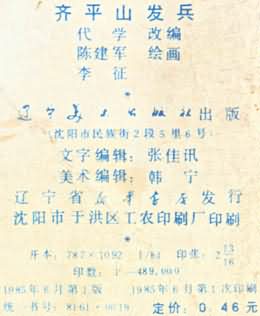 齐平山发兵
代学 改编
陈建军 绘画
李征
辽宁美术出版社出版
(沈阳市民族街2段5里6号)
文字编辑:张佳讯
美术编辑:韩宁
辽宁省新华书店发行
沈阳市于洪区工农印刷厂印刷
开本:787×1092 1/64 印张:2 13/16
印数:1—489,000
1985年6月第1版 1985年6月第1次印刷
统一书号:8161·0619 定价:0.46元